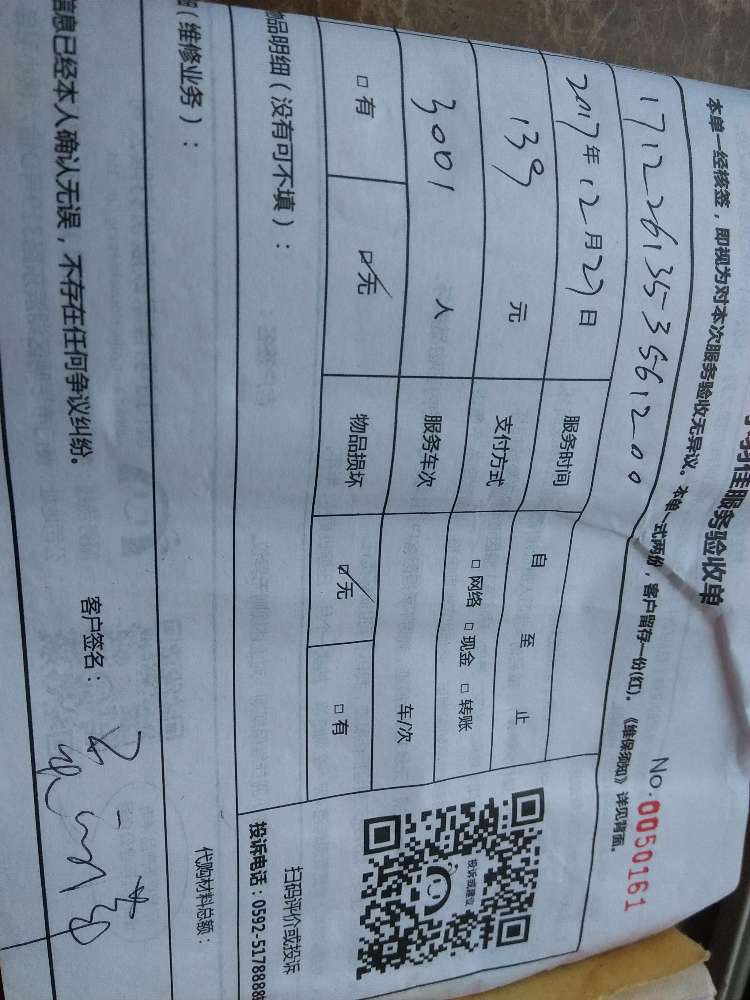 佳服务验收单
No.0050161
本单一经核签，即视为对本次服务验收无异议。本单一式两份，客户留存一份(红)。《维保须知》详见背面。
1712261353561200
2017年12月27日 服务时间 自 至 止
139 元 支付方式 □网络 □现金 □转账
3001 人 服务车次 车/次
□有 ☑无 物品损坏 ☑无 □有
物品明细（没有可不填）：
（维修业务）：
投诉或建议
扫码评价或投诉
投诉电话：0592-5178888
代购材料总额：
信息已经本人确认无误，不存在任何争议纠纷。
客户签名：